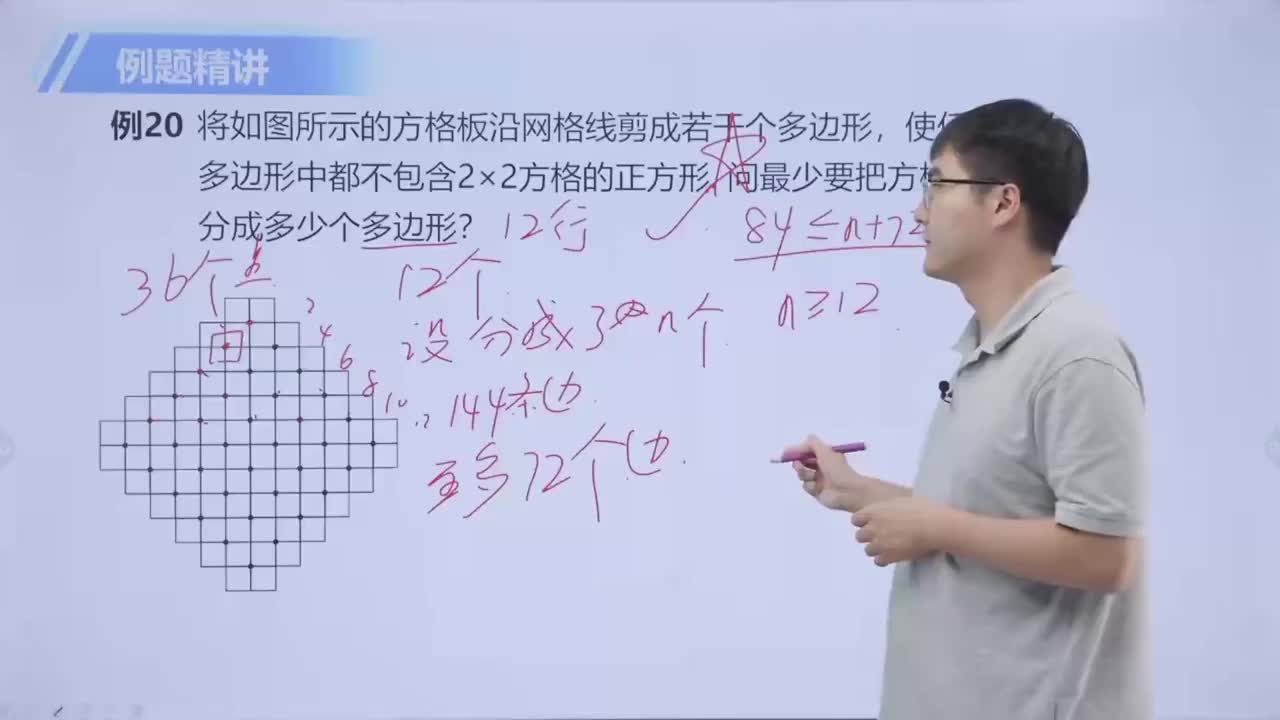 例题精讲
例20 将如图所示的方格板沿网格线剪成若干个多边形，使
多边形中都不包含2×2方格的正方形,问最少要把方格
分成多少个多边形?
12行
84≤n+72
36个点
12个
设分成了n个
n≥12
2
4
6
8
10
144条边
至多72个边